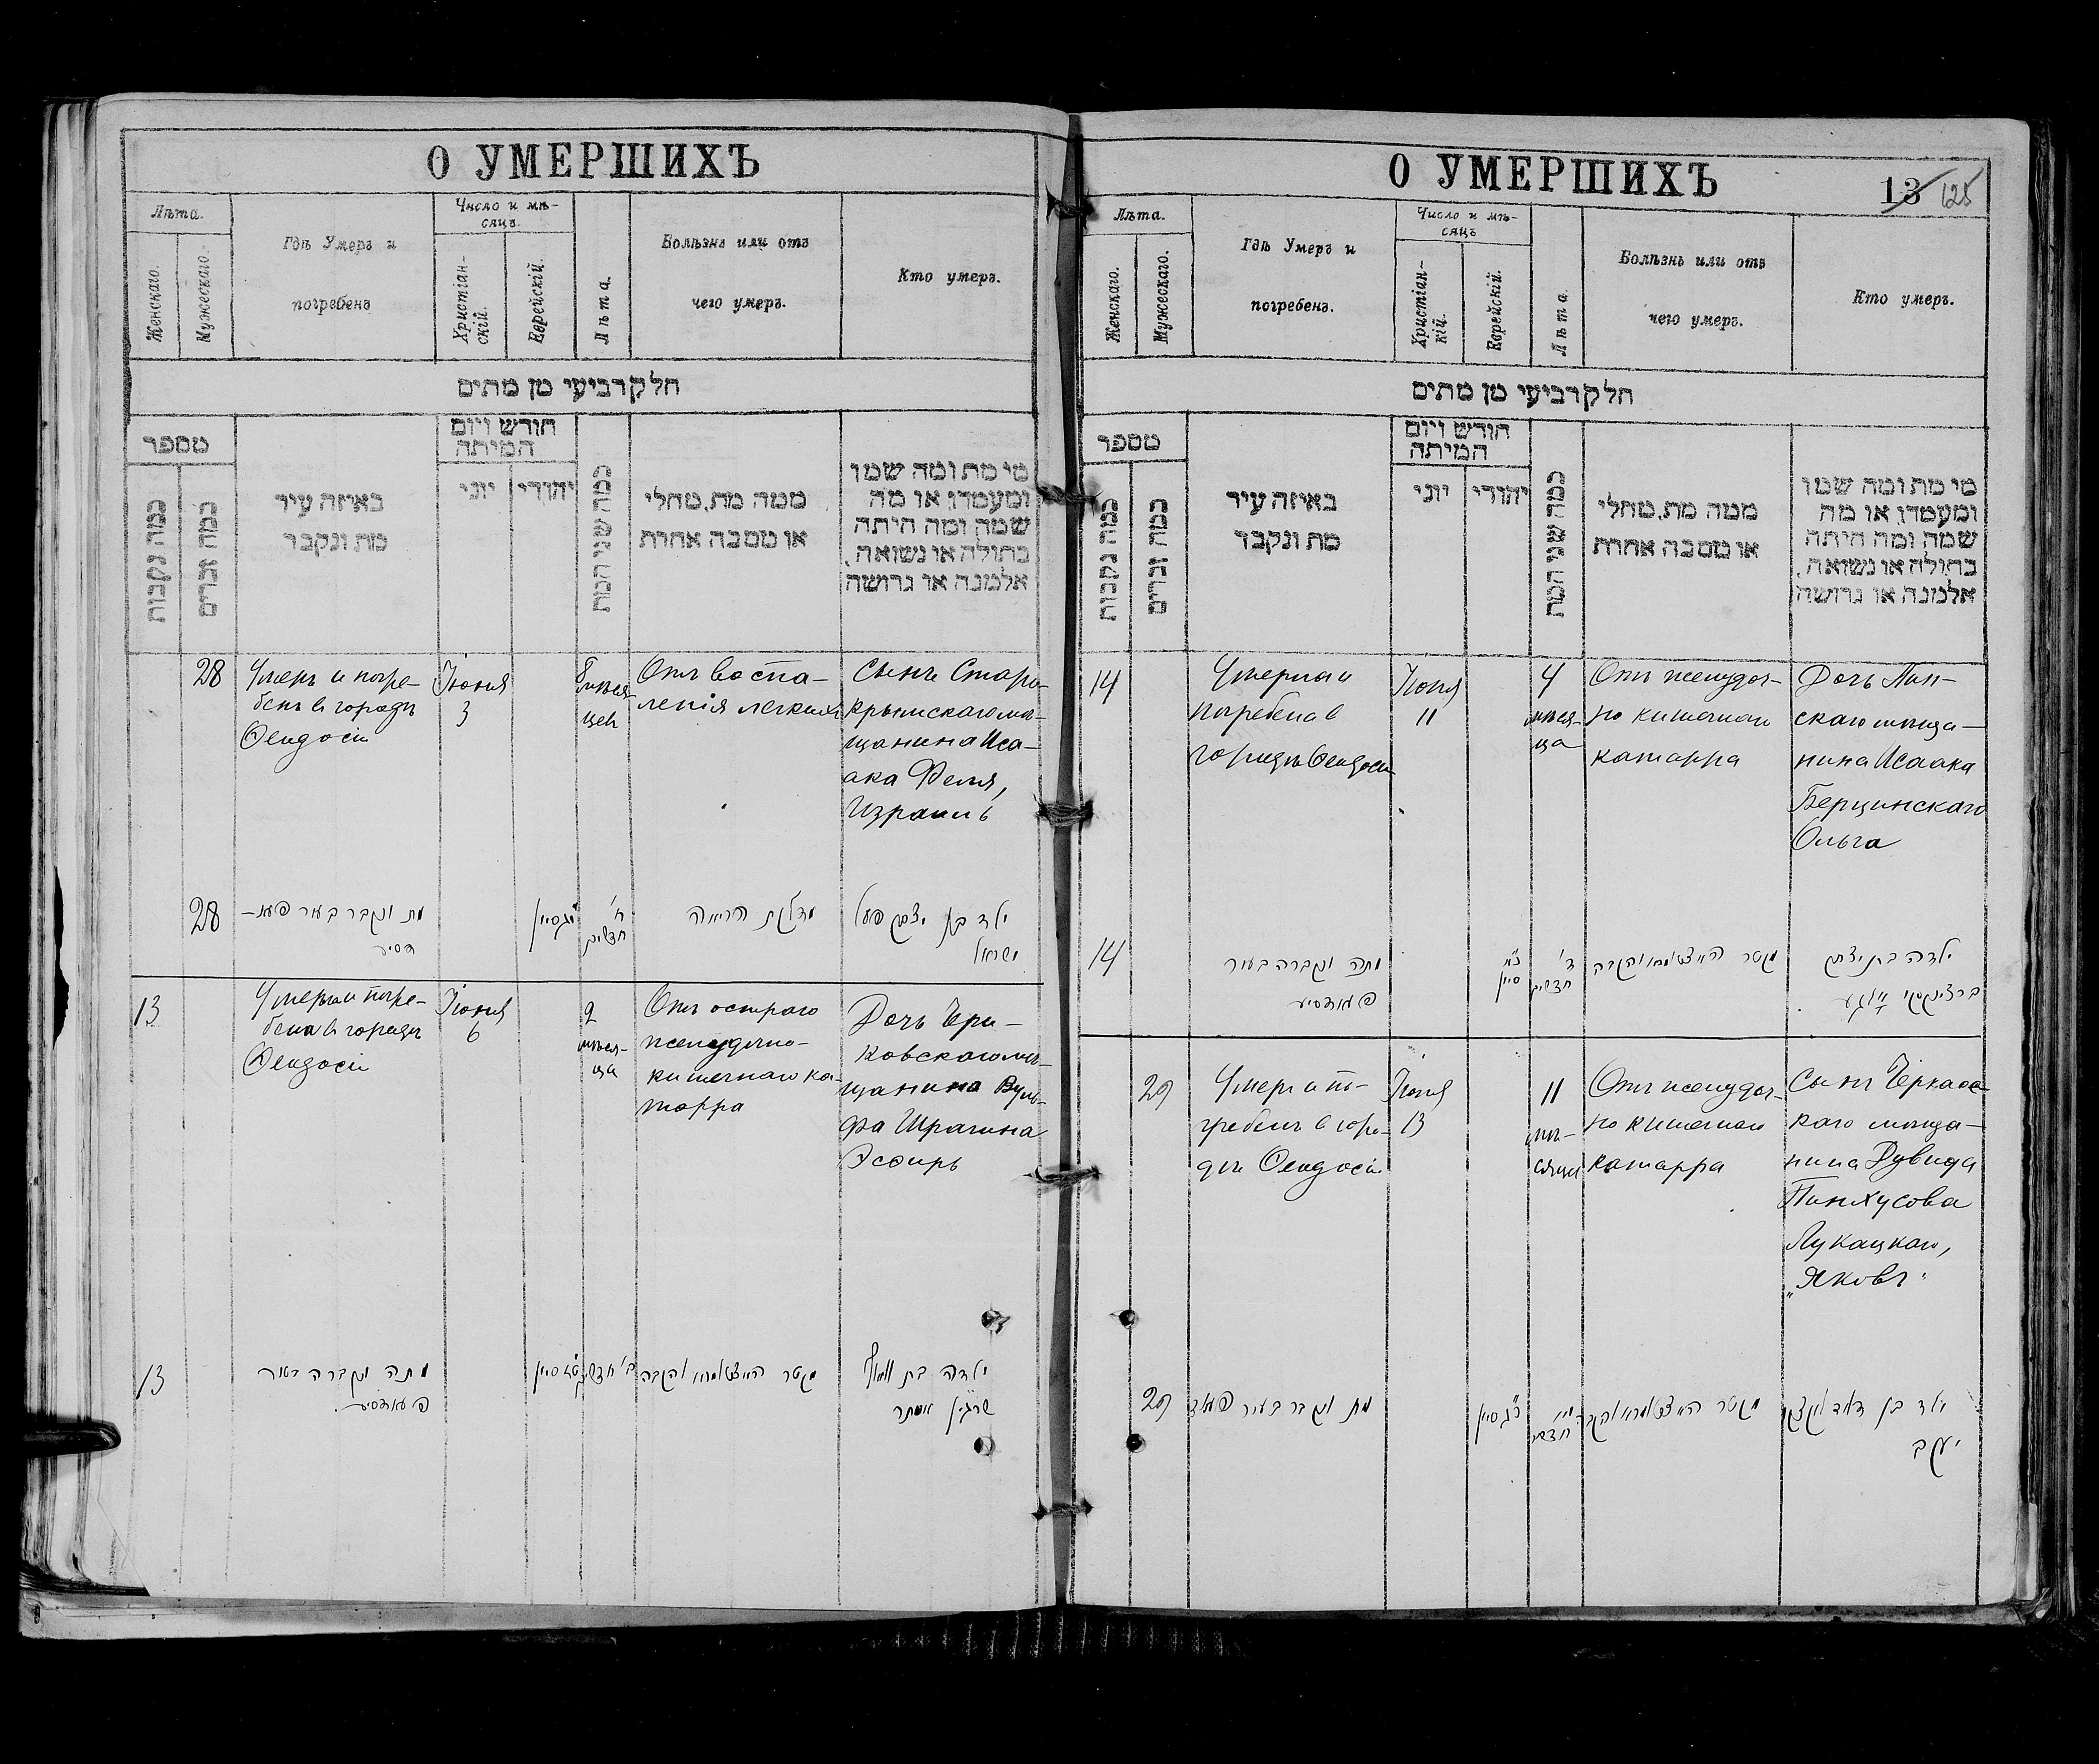 О УМЕРШИХЪ
Лѣта.
Женскаго.
Мужескаго.
Гдѣ Умеръ и
погребенъ
Число и мѣ-
сяцъ.
Христіан-
скій.
Еврейскій.
Лѣта.
Болѣзнь или отъ
чего умеръ.
Кто умеръ.
חלק רביעי מן מתים
מספר
כמה נקבות
כמה זכרים
באיזה עיר
מת ונקבר
חודש ויום
המיתה
יוני
יהודי
כמה שני המת
ממה מת, מחלי
או מסבה אחרת
מי מת ומה שמו
ומעמדו, או מה
שמה ומה היתה
בתולה או נשואה,
אלמנה או גרושה
28
Умеръ и погре-
бенъ въ городѣ
Ѳеодосіи
Іюня
3
8 мѣся-
цев
Отъ воспа-
ленія легкихъ
Сынъ Старо-
крымскаго мѣ-
щанина Иса-
ака Феля,
Израиль
28
מת ונקבר בעיר פעא-
דסיע
ג סיון
ח'
חדשים
מדלקת הריאה
ילד בן יצחק פעל
ישראל
13
Умерла и погре-
бена въ городѣ
Ѳеодосіи
Іюня
6
2
мѣся-
ца
Отъ остраго
желудочно-
кишечнаго ка-
тарра
Дочь Чери-
ковскаго мѣ-
щанина Вуль-
фа Шрагина
Эсѳирь
13
מתה ונקברה בעיר
פעאדסיע
סיון
ב' חדשים
ילדה בת וואלף
שרגין אסתר
О УМЕРШИХЪ
13 125
Лѣта.
Женскаго.
Мужескаго.
Гдѣ Умеръ и
погребенъ.
Число и мѣ-
сяцъ
Христіан-
кій.
Еврейскій.
Лѣта.
Болѣзнь или отъ
чего умеръ.
Кто умеръ.
חלק רביעי מן מתים
מספר
כמה נקבות
כמה זכרים
באיזה עיר
מת ונקבר
חודש ויום
המיתה
יוני
יהודי
כמה שני המת
ממה מת, מחלי
או מסבה אחרת
מי מת ומה שמו
ומעמדו, או מה
שמה ומה היתה
בתולה או נשואה,
אלמנה או גרושה
14
Умерла и
погребена в
городѣ Ѳеодосіи
Іюня
11
4
мѣся-
ца
Отъ желудоч-
но кишечнаго
катарра
Дочь Пин-
скаго мѣща-
нина Исаака
Берцинскаго
Ольга
14
מתה ונקברה בעיר
פעאדסיע
סיון
ד'
חדשים
ילדה בת יצחק
ברצינסקי
29
Умеръ и по-
гребенъ в горо-
дѣ Ѳеодосіи
Іюня
13
11
мѣ-
сяцев
Отъ желудоч-
но кишечнаго
катарра
Сынъ Черкасс-
каго мѣща-
нина Дувида
Пинхусова
Лукацкаго,
„Яковъ"
29
מת ונקבר בעיר פעאד
סיון
חדשים
ילד בן דוד לוקצקי
יעקב